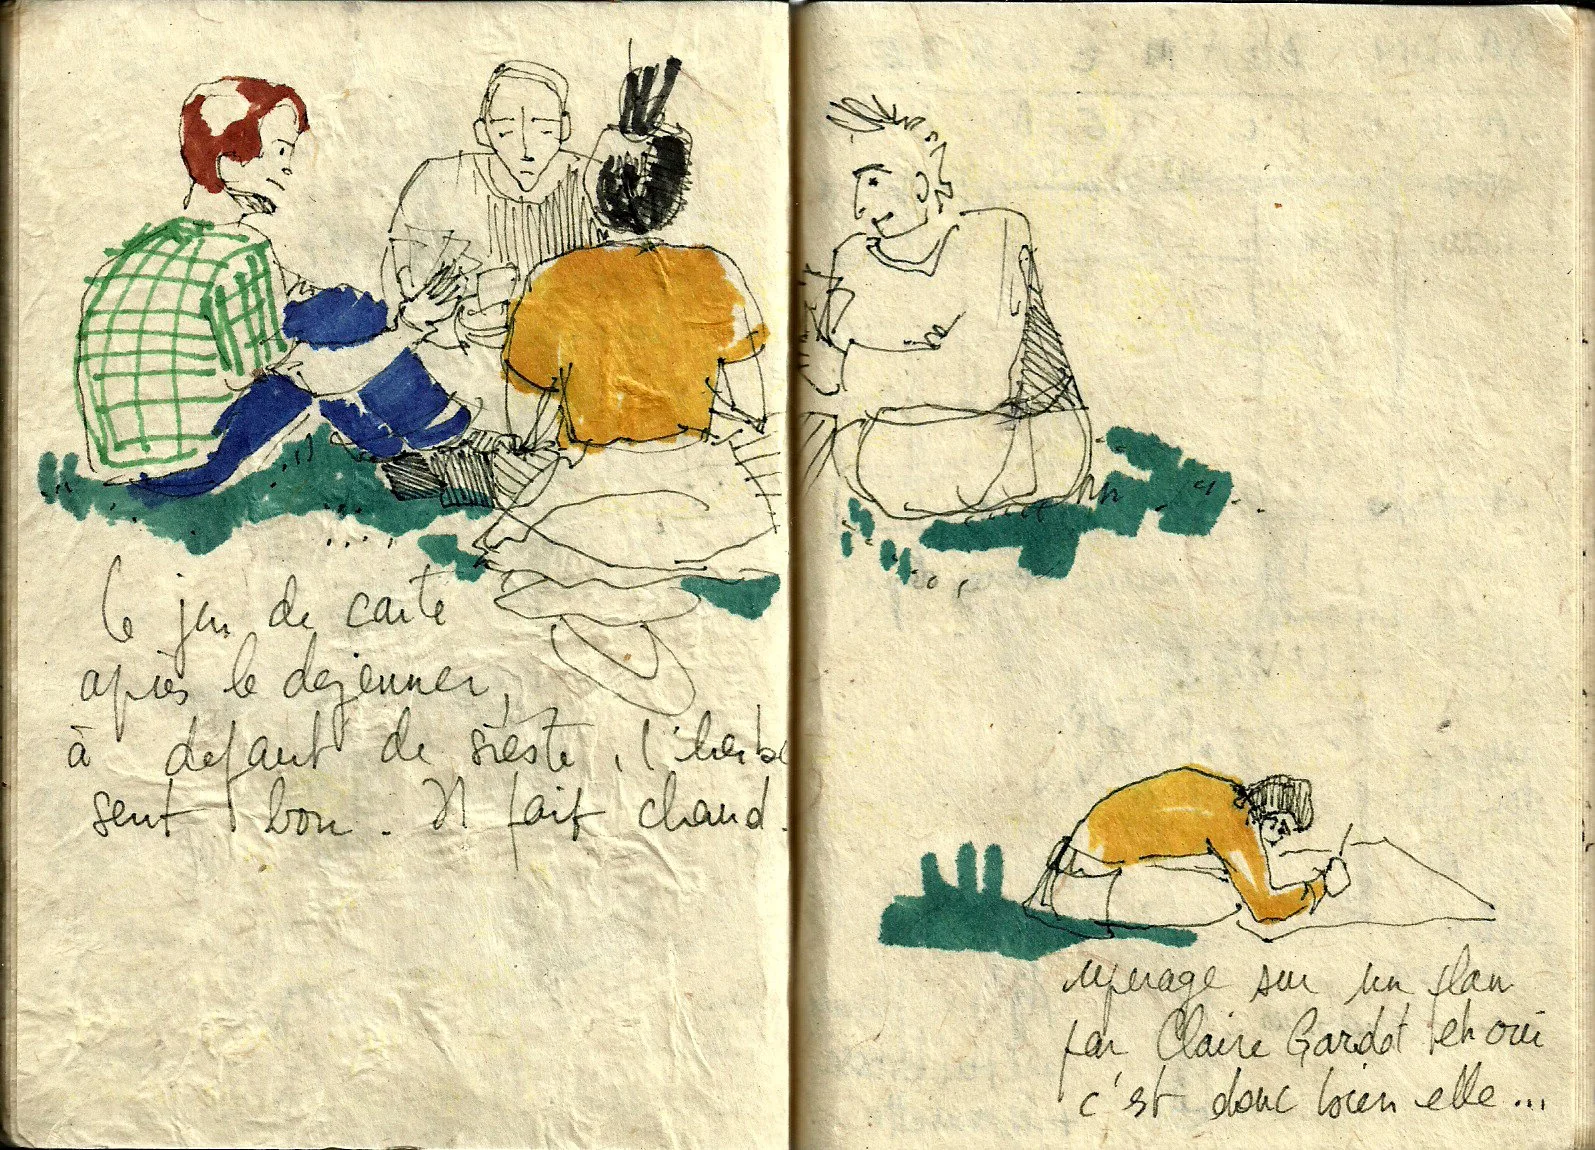 le jeu de carte
après le dejeuner,
à defaut de sieste, l'herbe
sent bon. Il fait chaud.
reperage sur un plan
par Claire Gardot eh oui
c'est donc bien elle...